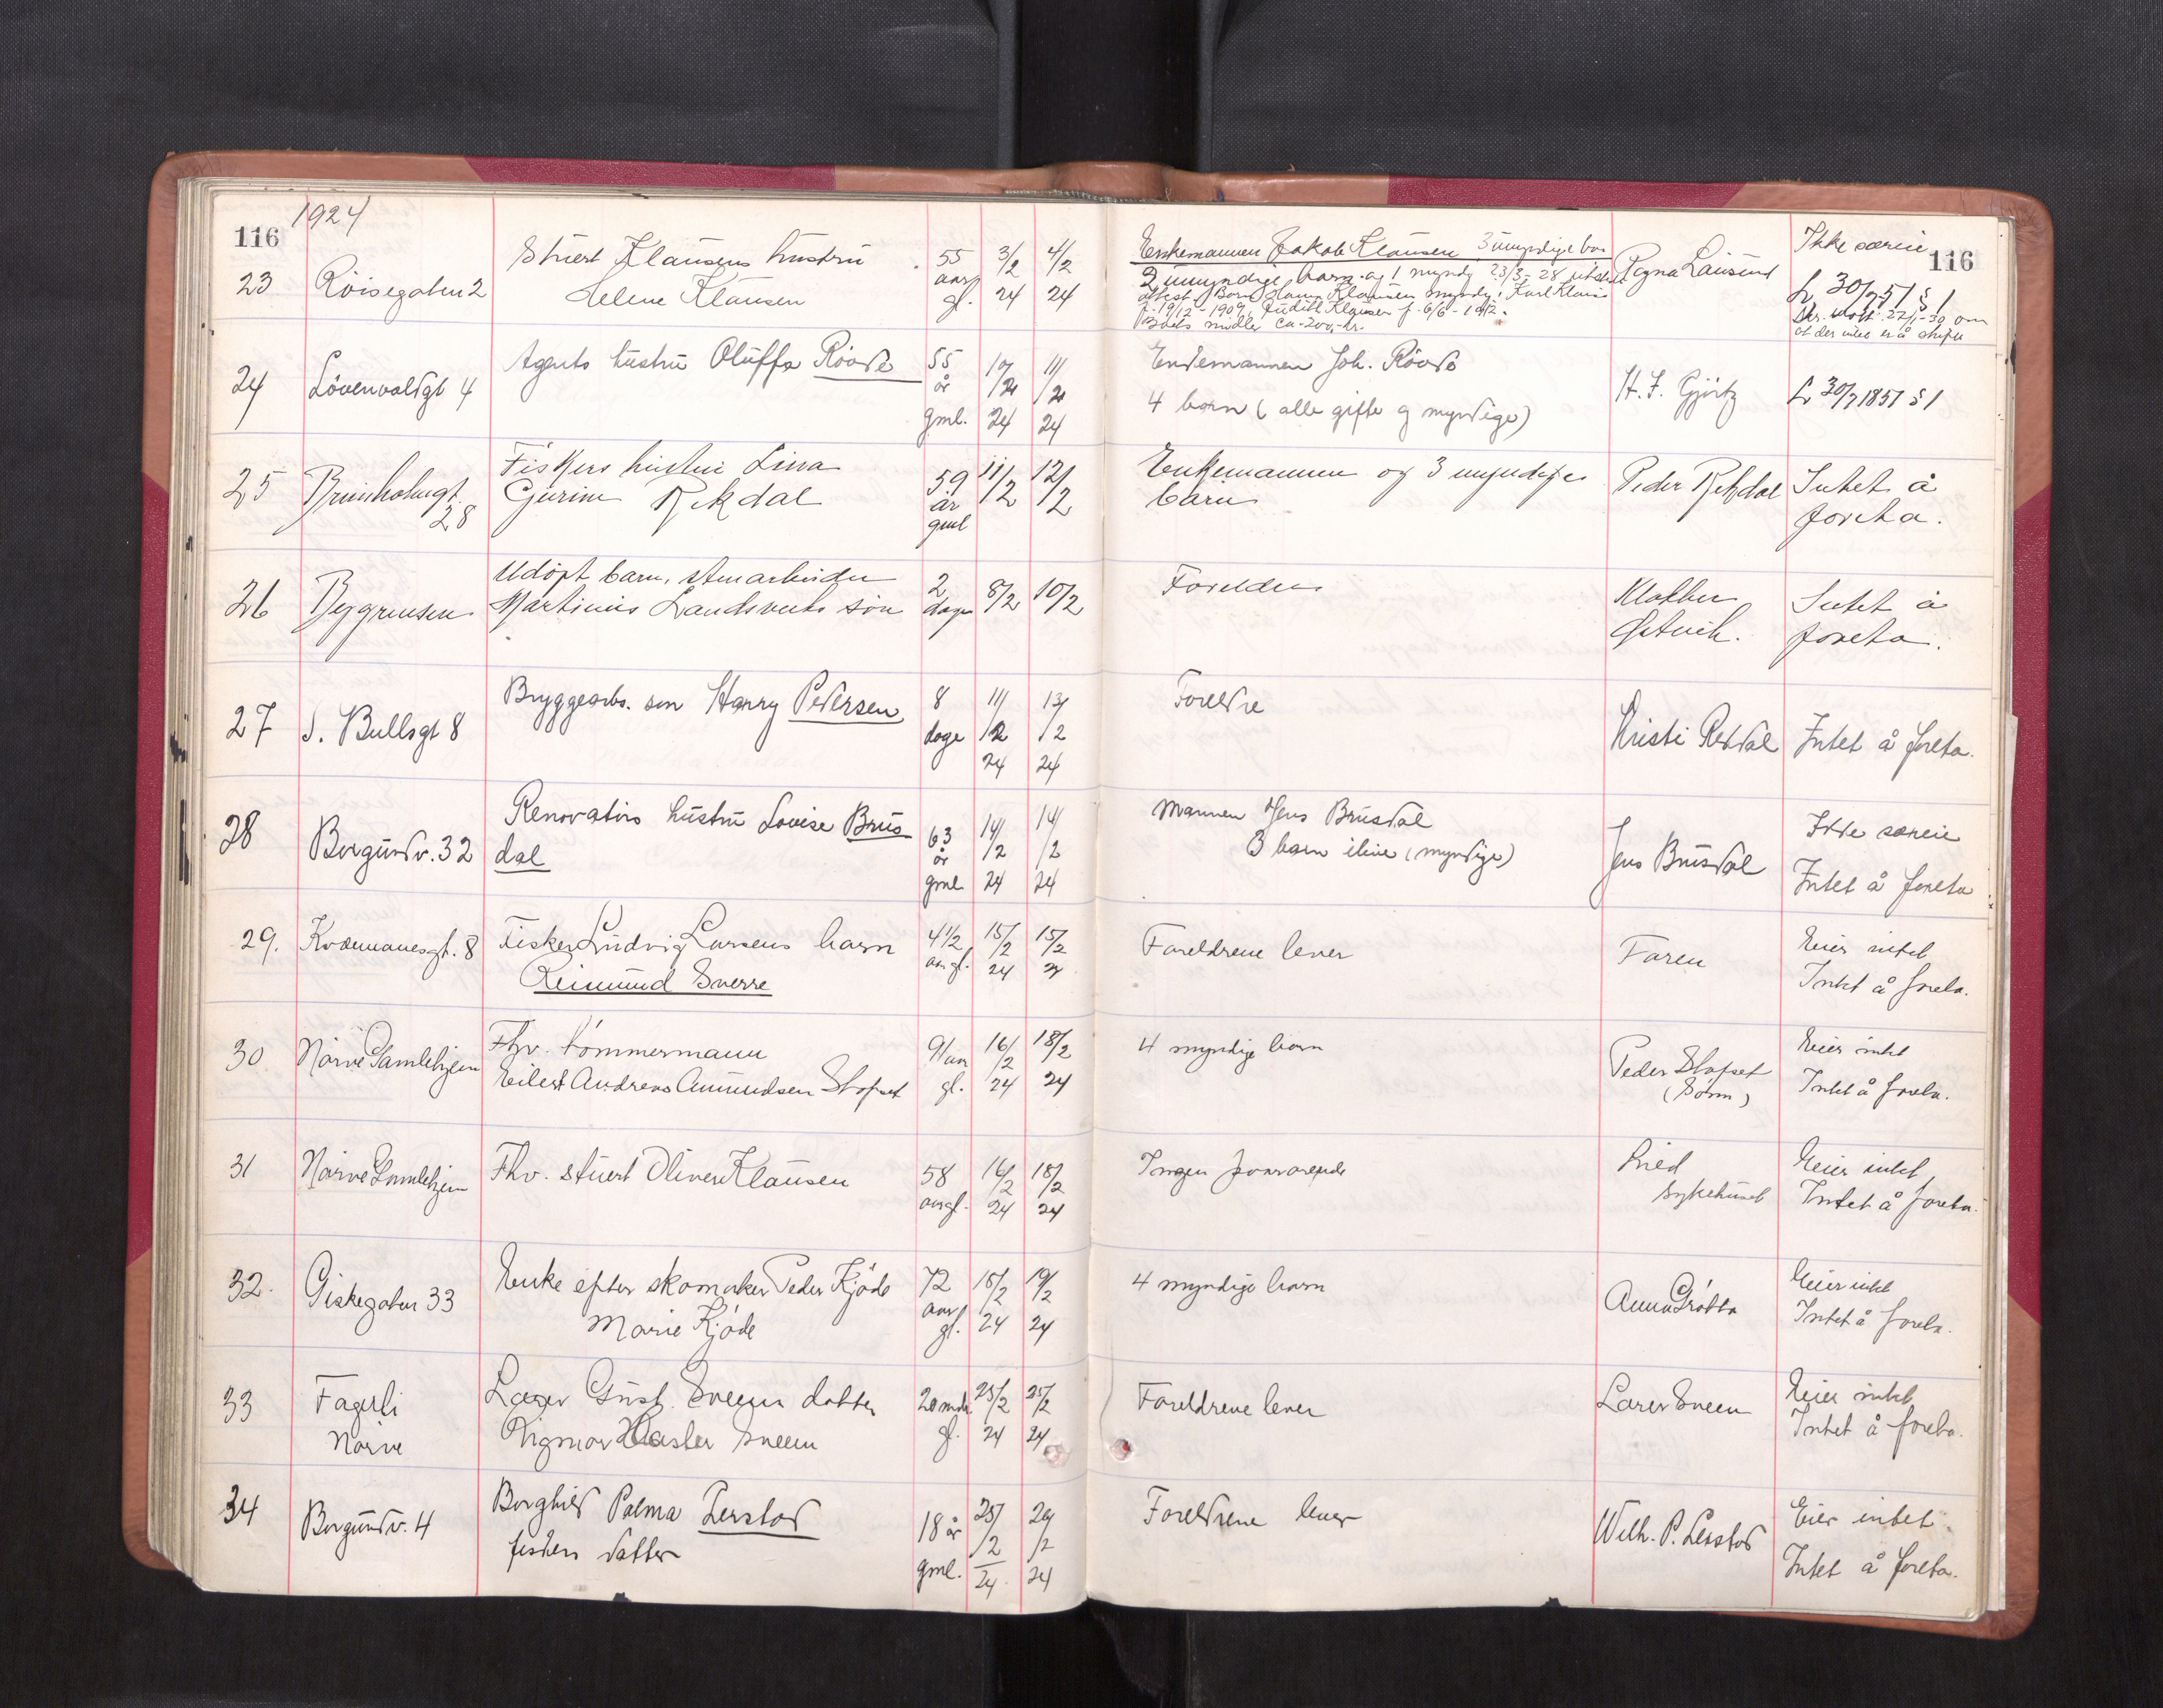 116
1924
116
23
Röisegaten 2
Stuert Klausens hustru
Helene Klausen
55
aar
gl.
3/2
24
4/2
24
Enkemannen Jakob Klausen 3 umyndige barn
2 umyndige barn og 1 myndig 23/3-28
attest
f. 1912 - 1909, Judith Klausen f. 6/6-1912.
Boets midler ca. 200,- kr.
Ragna Lausund
Ikke særeie
L 30/7 51 § 1
at der intet er å skifte
24
Lövenvoldgt 4
Agents hustru Oluffa Röode
55
år
gml.
10/2
24
11/2
24
Enkemannen Joh. Röode
4 barn (alle gifte og myndige)
H. J. Gjörtz
L 30/7 1851 § 1
25
Brunholmgt.
28
Fiskers hustru Lina
Gurine Rekdal
59
år
gml
11/2
12/2
Enkemannen og 3 myndige
barn
Peder Rekdal
Intet å
foreta.
26
Byggrensen
Udöpt barn, stenarbeider
Martinus Landsverks sön
2
dage
8/2
10/2
Foreldre
Klokker
Intet å
foreta.
27
J. Bullsgt 8
Bryggearb. sön Harry Pedersen
8
dage
11/2
24
13/2
24
Foreldre
Kristi Rekdal
Intet å foreta.
28
Borgundv. 32
Renovatörs hustru Lovise Brus
dal
63
år
gml
14/2
24
14/2
24
Mannen Jens Brusdal
3 barn ilive (myndige)
Jens Brusdal
Ikke særeie
Intet å foreta
29.
Kvennanesgt. 8
Fisker Ludvig Larsens barn
Reimund Sverre
4 1/2
aar gl.
15/2
24
15/2
24
Foreldrene lever
Faren
Eier intet
Intet å foreta.
30.
Nörve Gamlehjem
Fhv. tömmermann
Eilert Andreas Amundsen Slopset
91 aar
gl.
16/2
24
18/2
24
4 myndige barn
Peder Slopset
(Sönn)
Eier intet
Intet å foreta.
31
Nörve Gamlehjem
Fhv. stuert Oliver Klausen
58
aar gl.
16/2
24
18/2
24
Ingen
sykehuset
Eier intet
Intet å foreta.
32.
Giskegaten 33
Enke efter skomaker Peder Kjöde
Marie Kjöde
72
aar
gl.
18/2
24
19/2
24
4 myndige barn
Anna Grötta
Eier intet
Intet å foreta.
33
Fagerli
Nörve
Sveens datter
Rigmor Sveen
20 mdr
gl.
25/2
24
25/2
24
Foreldrene lever
Sveen
Eier intet
Intet å foreta.
34
Borgundv. 4
Borghild Palma Lerstad
fiskers datter
18 år
gml.
25/2
24
29/2
24
Foreldrene lever
Wilh. P. Lerstad
Eier intet.
Intet å foreta.